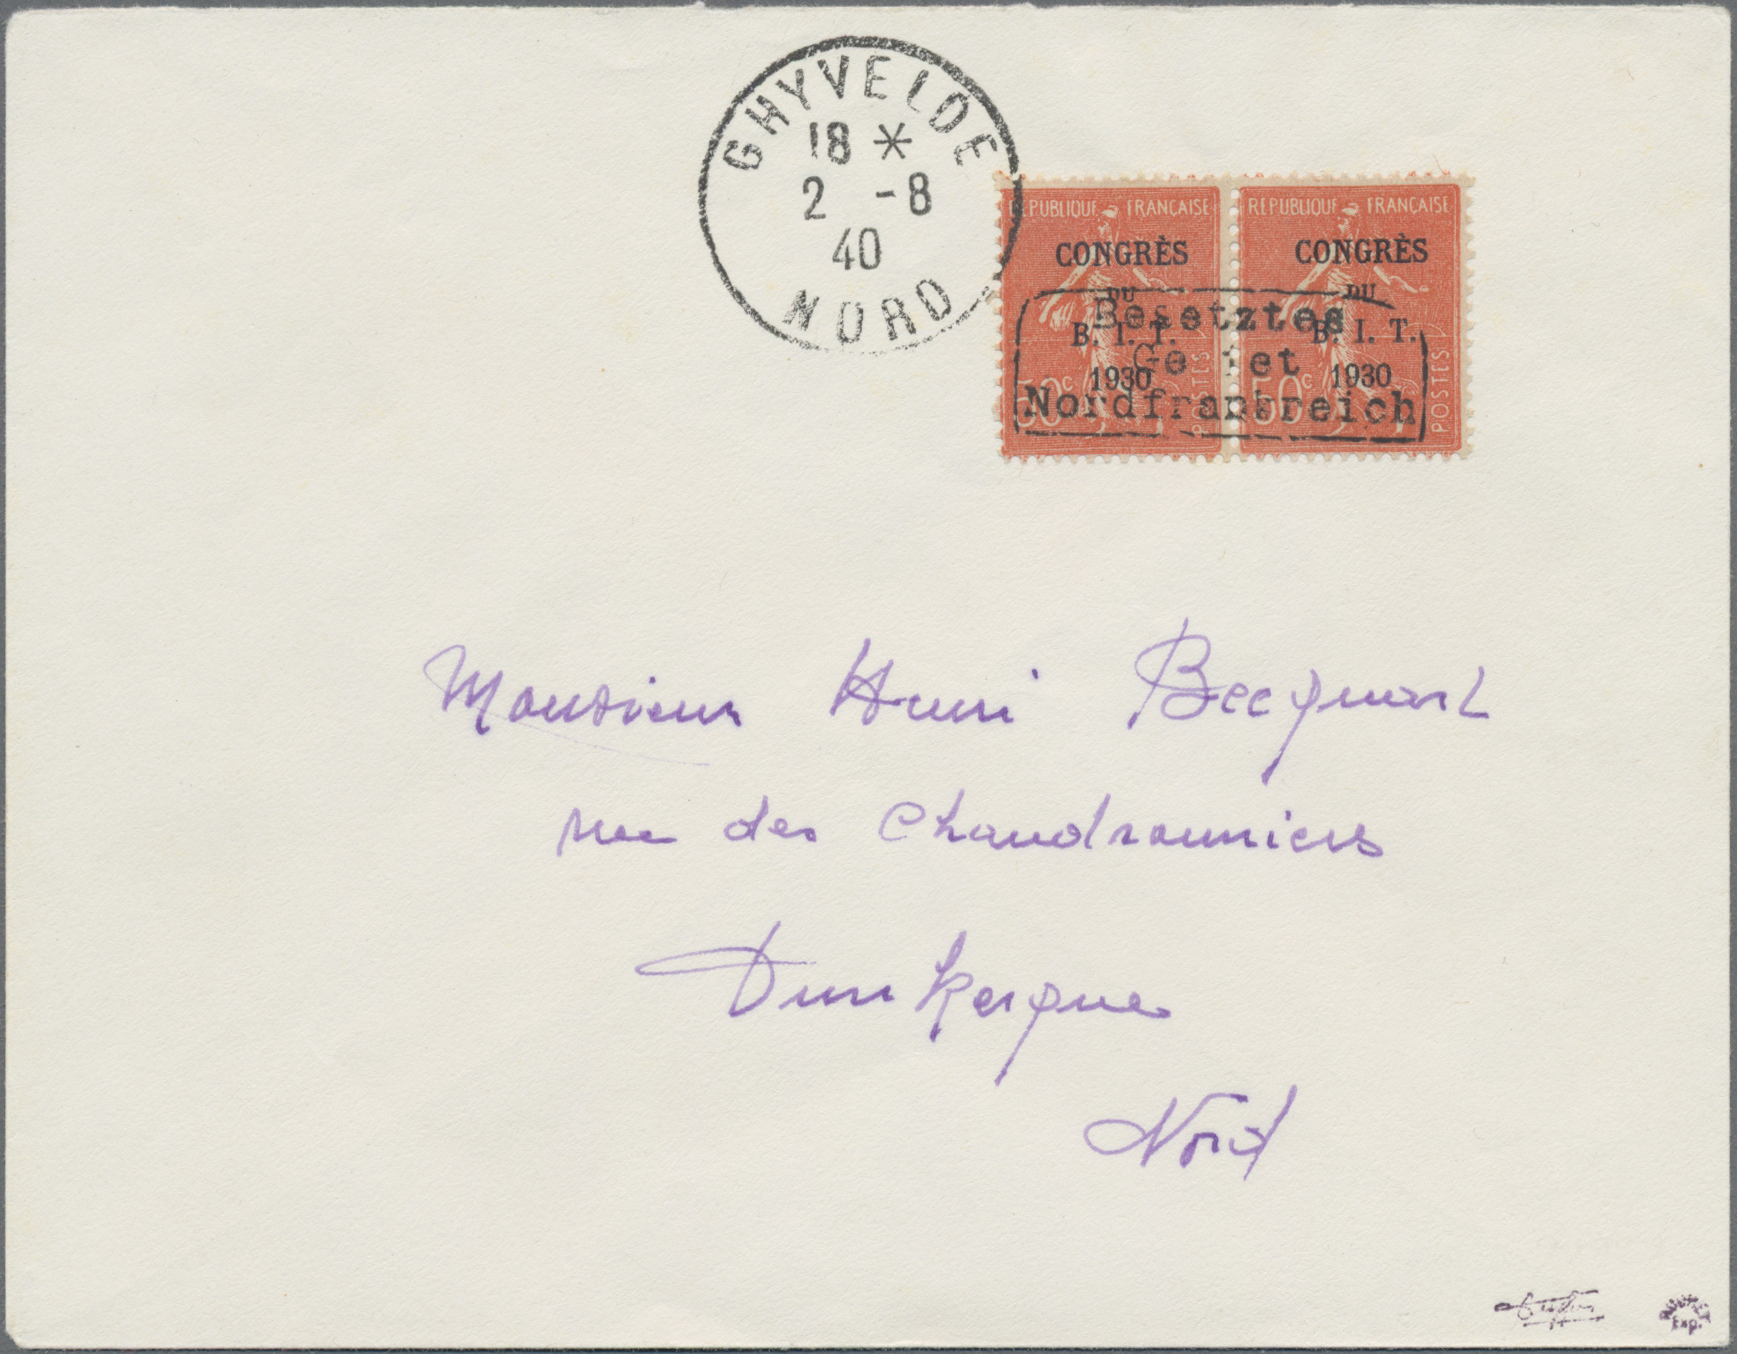 GHYVELDE
18 *
2 -8
40
NORD
REPUBLIQUE FRANÇAISE REPUBLIQUE FRANÇAISE
CONGRÈS CONGRÈS
DU DU
B. I. T. B. I. T.
1930 1930
50c 50c
POSTES POSTES
Besetztes
Ge iet
Nordfrankreich
Monsieur Henri Becquart
rue des Chaudronniers
Dunkerque
Nord
Exp.